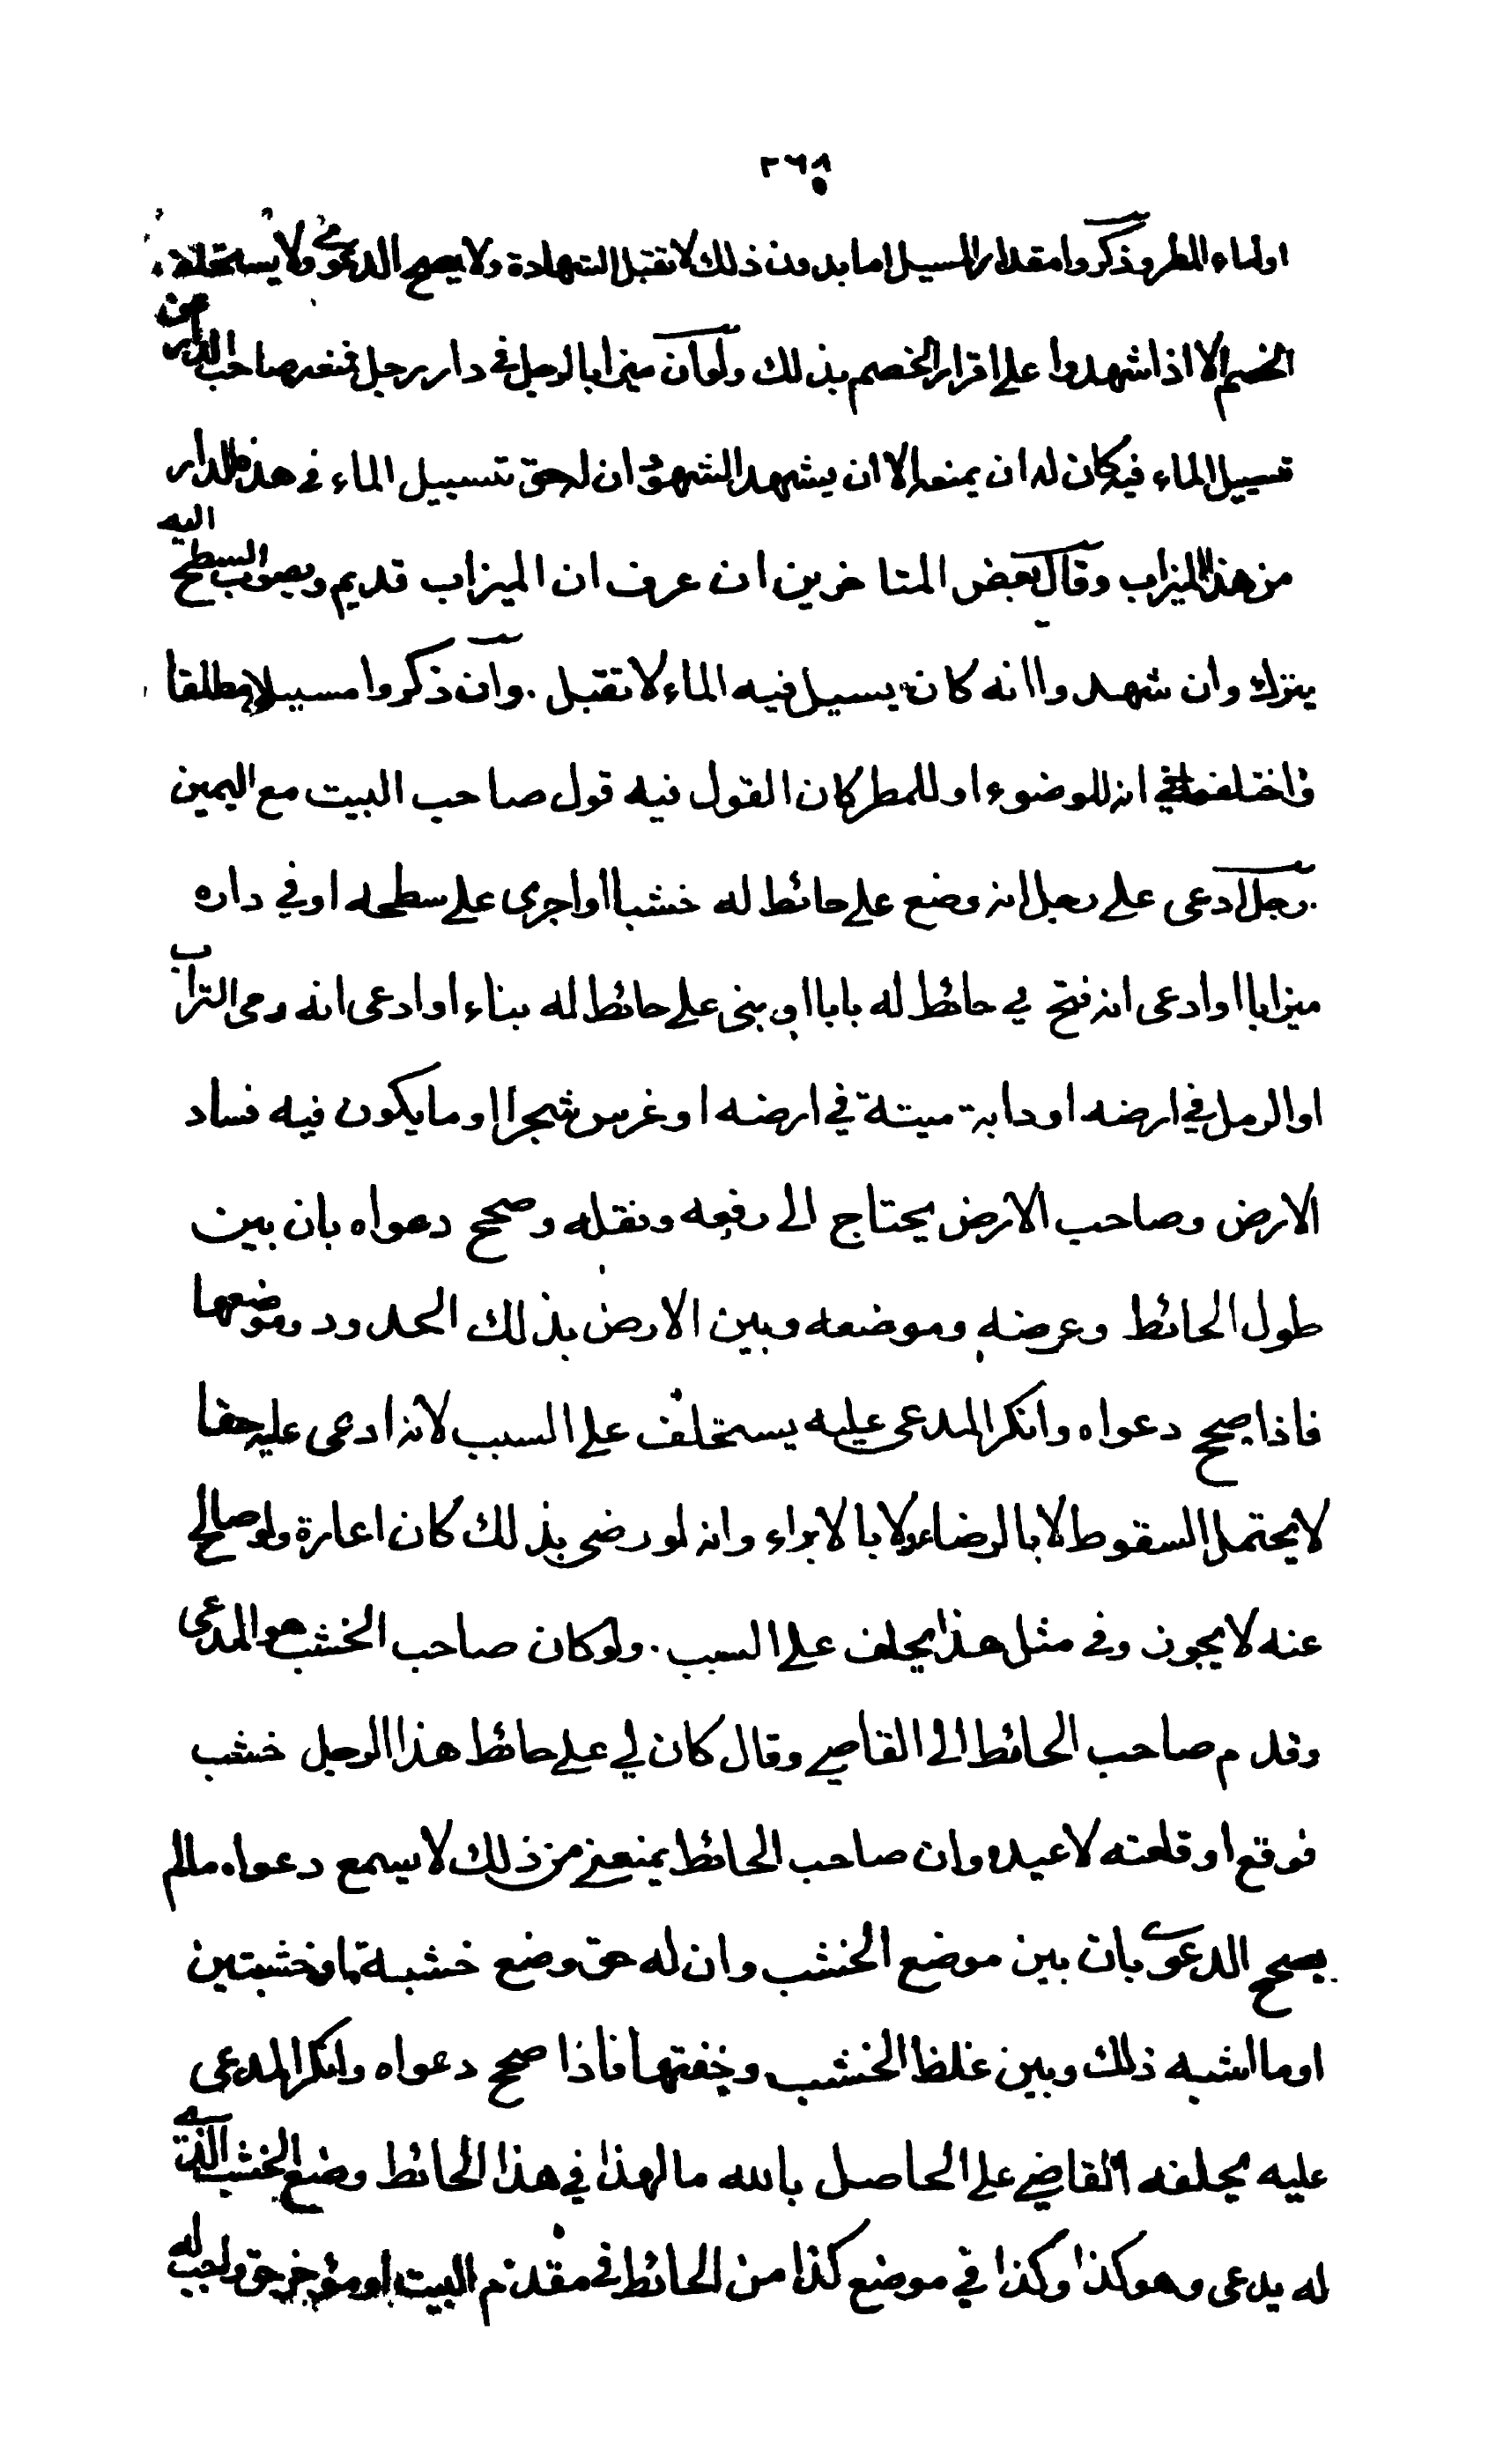 ٢٦٨
او لماء المطر وذكروا مقدار المسيل اما بدون ذلك لا تقبل الشهادة ولا يصح الدعوى ولا يستحلف
الخصم الا اذا شهدوا على اقرار الخصم بذلك ولو ان ميزابا لرجل في دار رجل فمنعه صاحب الدار من
تسييل الماء فيه كان له ان يمنعه الا ان يشهد الشهود ان له حق تسييل الماء في هذه الدار
من هذا الميزاب وقال بعض المتاخرين ان عرف ان الميزاب قديم وتصويب السطح اليه
يترك وان شهدوا انه كان يسيل فيه الماء لا تقبل . وان ذكروا مسيلا مطلقا
واختلفا في انه للوضوء او للمطر كان القول فيه قول صاحب البيت مع اليمين
رجل ادعى على رجل انه وضع على حائط له خشبا او اجرى على سطحه او في داره
ميزابا او ادعى انه فتح في حائط له بابا او بنى على حائط له بناء او ادعى انه رمى التراب
او الرمل في ارضه او دابة ميتة في ارضه او غرس شجرا او ما يكون فيه فساد
الارض وصاحب الارض يحتاج الى رفعه ونقله وصحح دعواه بان بين
طول الحائط وعرضه وموضعه وبين الارض بذلك الحدود وموضعها
فاذا صحح دعواه وانكر المدعى عليه يستحلف على السبب لانه ادعى عليه حقا
لا يحتمل السقوط لا بالرضاء ولا بالابراء وانه لو رضي بذلك كان اعارة ولو صالح
عنه لا يجوز وفي مثل هذا يحلف على السبب . ولو كان صاحب الخشب هو المدعي
وقدم صاحب الحائط الى القاضي وقال كان لي على حائط هذا الرجل خشب
فوقع او قلعته لاعيده وان صاحب الحائط يمنعني من ذلك لا يسمع دعواه ما لم
يصحح الدعوى بان بين موضع الخشب وان له حق وضع خشبة او خشبتين
او ما اشبه ذلك وبين غلظ الخشب وخفتها فاذا صحح دعواه وانكر المدعى
عليه يحلفه القاضي على الحاصل بالله ما لهذا في هذا الحائط وضع الخشب الذي
له يدعي وهو كذا وكذا في موضع كذا من الحائط في مقدم البيت او مؤخره حق واجب له